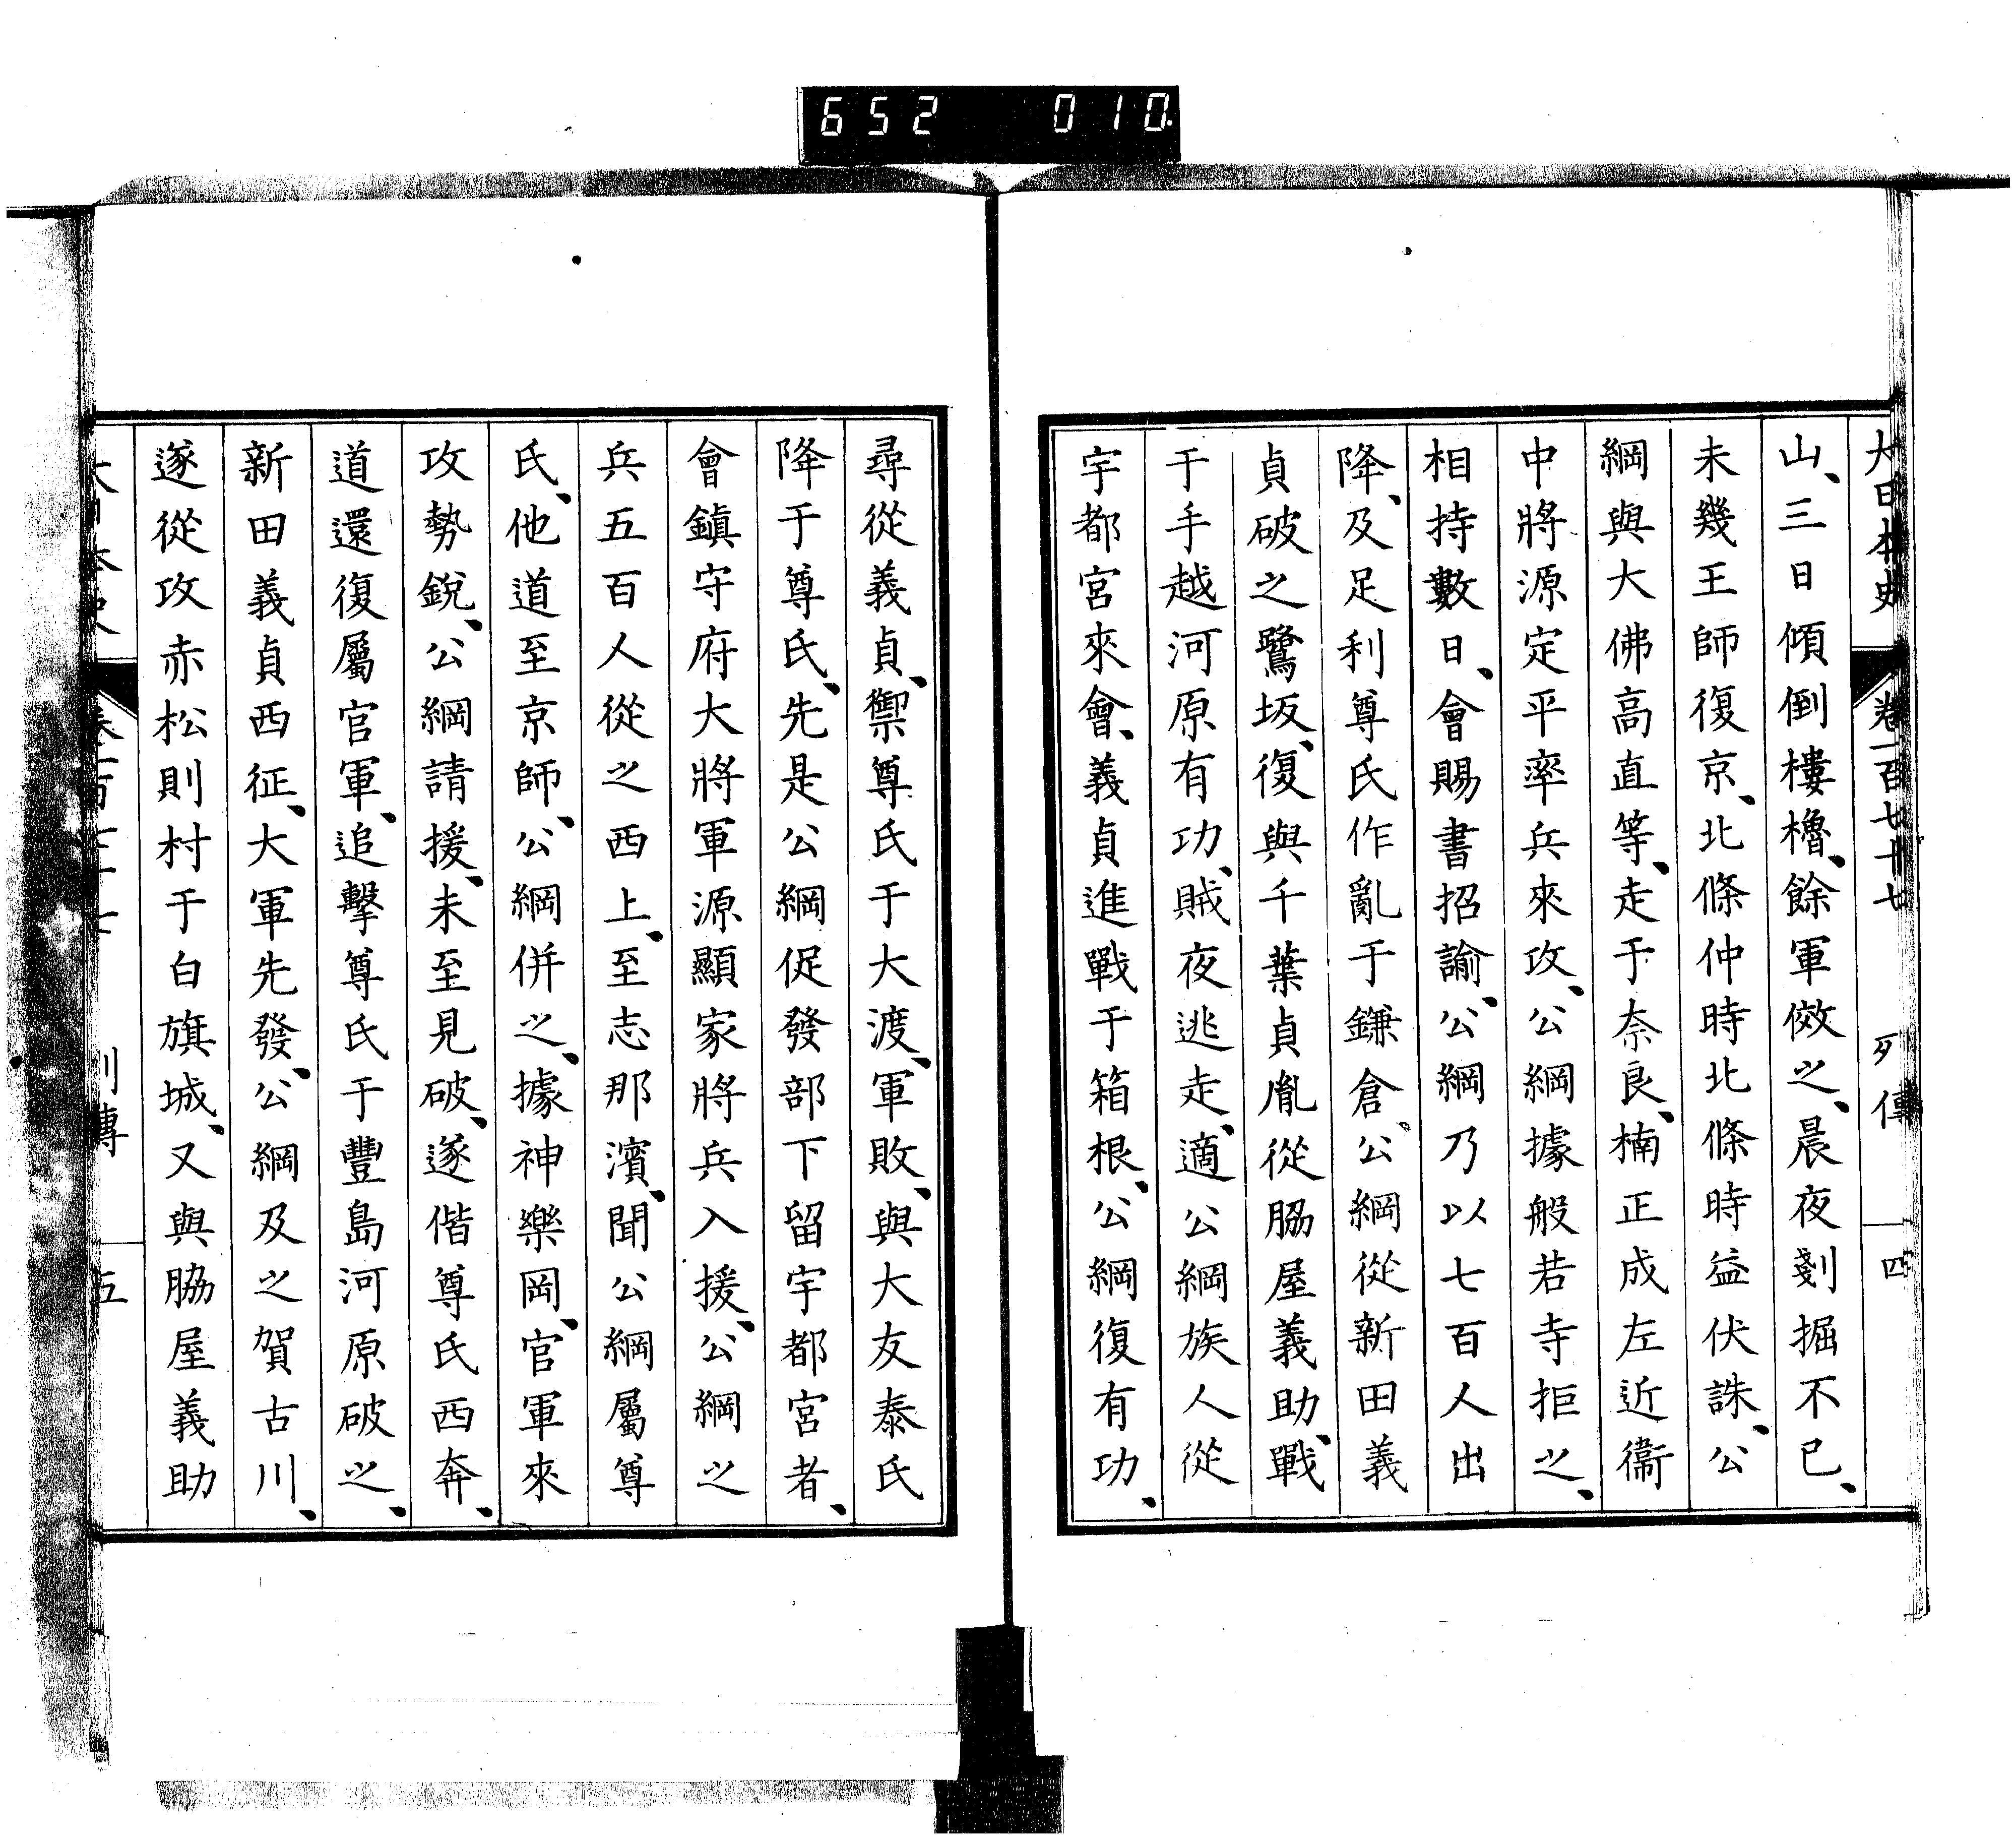 652 010
大日本史 卷一百七十七 列傳 四
山、三日傾倒樓櫓、餘軍傚之、晨夜剗掘不已、
未幾王師復京、北條仲時北條時益伏誅、公
綱與大佛高直等、走于奈良、楠正成左近衞
中將源定平率兵來攻、公綱據般若寺拒之、
相持數日、會賜書招諭、公綱乃以七百人出
降、及足利尊氏作亂于鎌倉、公綱從新田義
貞破之鷺坂、復與千葉貞胤從脇屋義助、戰
于手越河原有功、賊夜逃走、適公綱族人從
宇都宮來會、義貞進戰于箱根、公綱復有功、
尋從義貞、禦尊氏于大渡、軍敗、與大友泰氏
降于尊氏、先是公綱促發部下留宇都宮者、
會鎭守府大將軍源顯家將兵入援、公綱之
兵五百人從之西上、至志那濱、聞公綱屬尊
氏、他道至京師、公綱併之、據神樂岡、官軍來
攻勢銳、公綱請援、未至見破、遂偕尊氏西奔、
道還復屬官軍、追擊尊氏于豐島河原破之、
新田義貞西征、大軍先發、公綱及之賀古川、
遂從攻赤松則村于白旗城、又與脇屋義助
大日本史 卷一百七十七 列傳 五